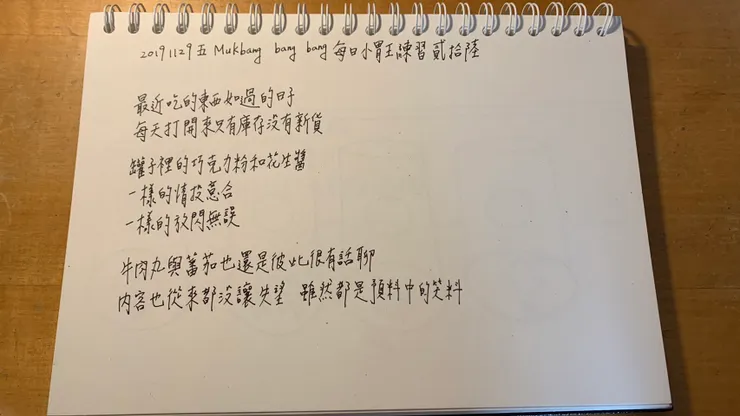 20191129五 Mukbang bang bang 每日小胃王練習貳拾陸
最近吃的東西如過的日子
每天打開來只有庫存沒有新貨
罐子裡的巧克力粉和花生醬
一樣的情投意合
一樣的放閃無誤
牛肉丸與蕃茄也還是彼此很有話聊
內容也從來都沒讓失望 雖然都是預料中的笑料